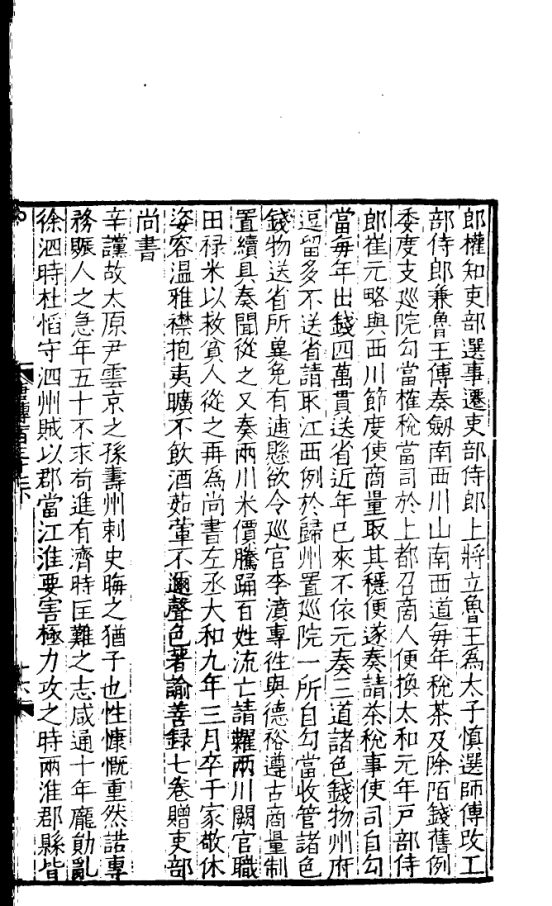 郎權知吏部選事遷吏部侍郎上將立魯王爲太子慎選師傅改工
部侍郎兼魯王傅奏劔南西川山南西道每年稅茶及除陌錢舊例
委度支廵院勾當榷稅當司於上都召商人便換太和元年戶部侍
郎崔元略與西川節度使商量取其穩便遂奏請茶稅事使司自勾
當每年出錢四萬貫送省近年已來不依元奏三道諸色錢物州府
逗留多不送省請取江西例於歸州置廵院一所自勾當收管諸色
錢物送省所兾免有逋懸欲令廵官李濆專徃與德裕遵古商量制
置續具奏聞從之又奏兩川米價騰踊百姓流亡請糶兩川闕官職
田祿米以救貧人從之再爲尚書左丞大和九年三月卒于家敬休
姿容温雅襟抱夷曠不飲酒茹葷不邇聲色著諭善録七卷贈吏部
尚書
辛讜故太原尹雲京之孫壽州刺史晦之猶子也性慷慨重然諾專
務賑人之急年五十不求苟進有濟時匡難之志咸通十年龐勛亂
徐泗時杜慆守泗州賊以郡當江淮要害極力攻之時兩淮郡縣皆